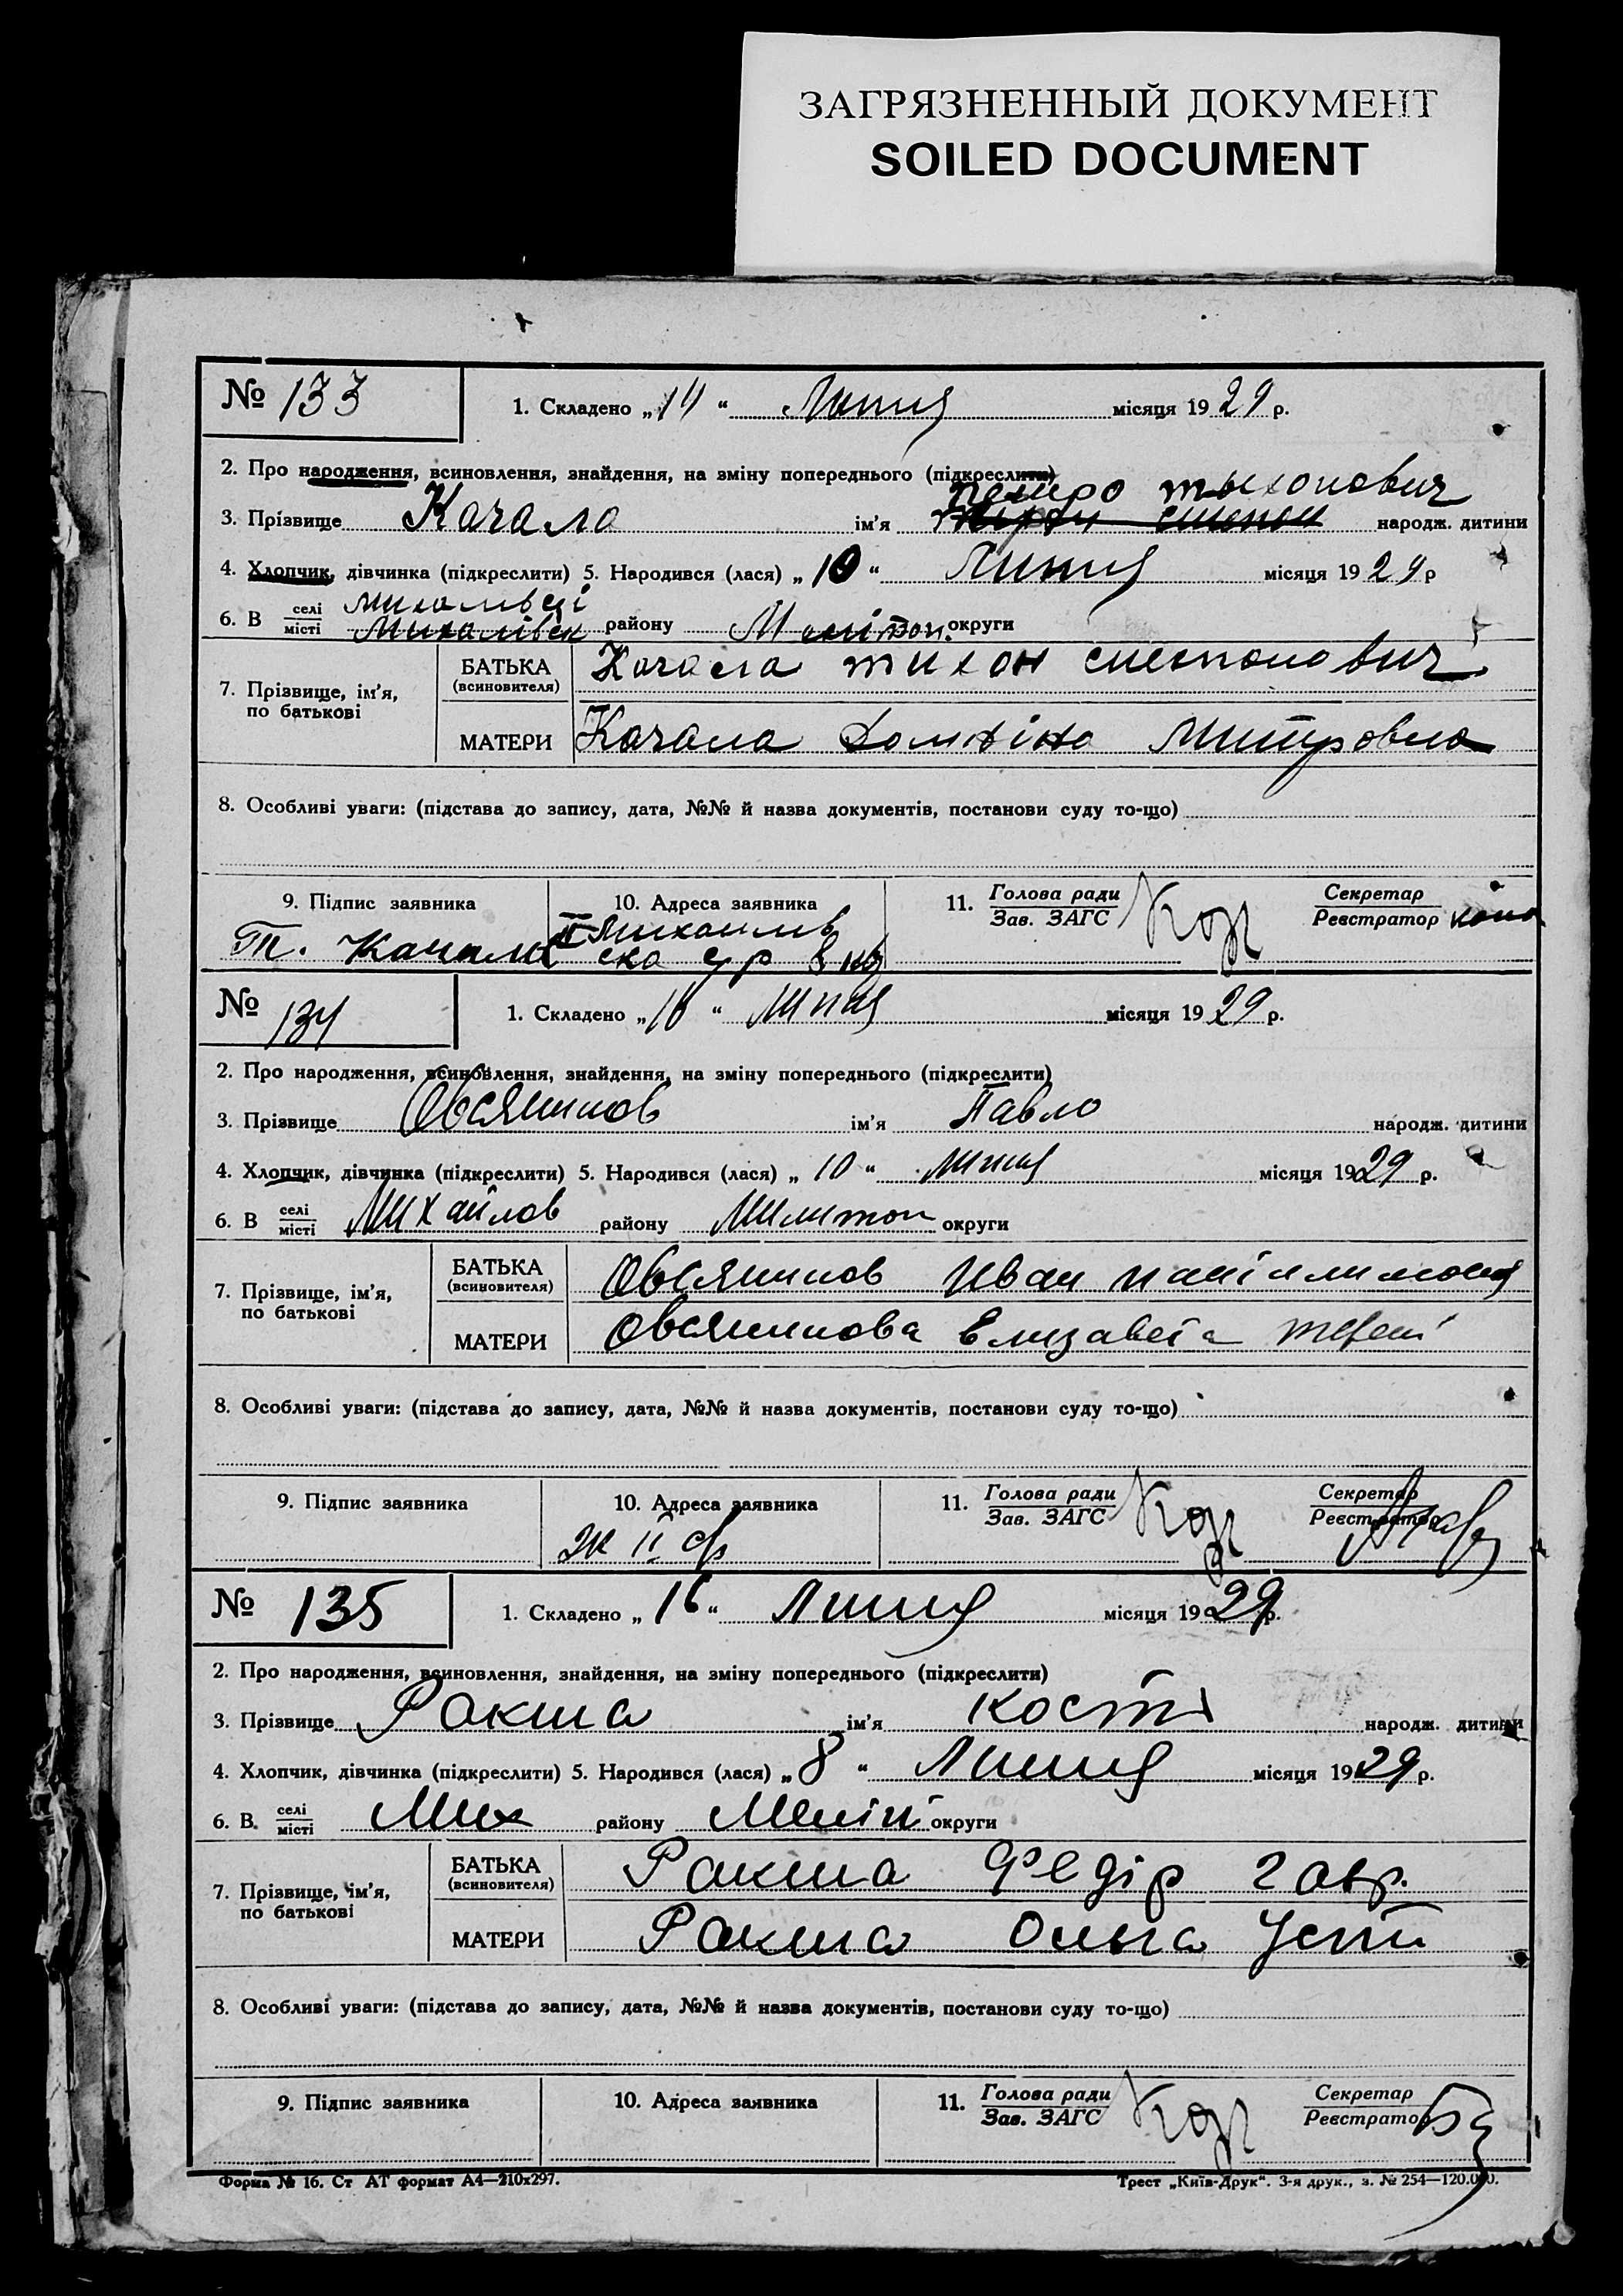 ЗАГРЯЗНЕННЫЙ ДОКУМЕНТ
SOILED DOCUMENT
№ 133
1. Складено „14“ Липня місяця 1929 р.
2. Про народження, всиновлення, знайдення, на зміну попереднього (підкреслити)
петро тыхонович
3. Прізвище Качало ім'я степан народж. дитини
4. Хлопчик, дівчинка (підкреслити) 5. Народився (лася) „10“ Липня місяця 1929 р
михальвці
6. В селі місті Михалівск району округи
7. Прізвище, ім'я, по батькові
БАТЬКА (всиновителя) Качала тихон степанович
МАТЕРИ Качала Домніка Митровна
8. Особливі уваги: (підстава до запису, дата, №№ й назва документів, постанови суду то-що)
9. Підпис заявника
Т. Качала
10. Адреса заявника
II Михайлів
ска ср
11. Голова ради Зав. ЗАГС Кор Секретар Реєстратор
№ 134
1. Складено „16“ Липня місяця 1929 р.
2. Про народження, всиновлення, знайдення, на зміну попереднього (підкреслити)
3. Прізвище Овсяников ім'я Павло народж. дитини
4. Хлопчик, дівчинка (підкреслити) 5. Народився (лася) „10“ Липня місяця 1929 р.
6. В селі місті Михайлов району Милитоп округи
7. Прізвище, ім'я, по батькові
БАТЬКА (всиновителя) Овсяников Иван
МАТЕРИ Овсяникова Елизавета
8. Особливі уваги: (підстава до запису, дата, №№ й назва документів, постанови суду то-що)
9. Підпис заявника
10. Адреса заявника
11. Голова ради Зав. ЗАГС Кор Секретар Реєстратор
№ 135
1. Складено „16“ Липня місяця 1929 р.
2. Про народження, всиновлення, знайдення, на зміну попереднього (підкреслити)
3. Прізвище Ракша ім'я Кость народж. дитини
4. Хлопчик, дівчинка (підкреслити) 5. Народився (лася) „8“ Липня місяця 1929 р.
6. В селі місті Мих району Меліт округи
7. Прізвище, ім'я, по батькові
БАТЬКА (всиновителя) Ракша Федір Гавр.
МАТЕРИ Ракша Ольга Усти
8. Особливі уваги: (підстава до запису, дата, №№ й назва документів, постанови суду то-що)
9. Підпис заявника
10. Адреса заявника
11. Голова ради Зав. ЗАГС Кор Секретар Реєстратор
Форма № 16. Ст АТ формат А4—210х297.
Трест „Київ-Друк“. 3-я друк., з. № 254—120.000.